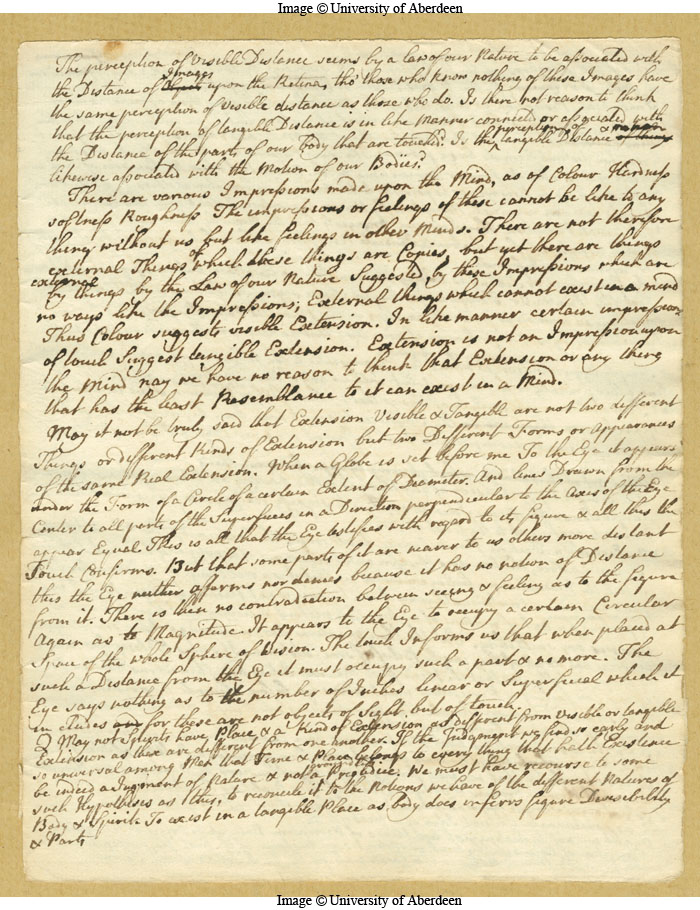 Image © University of Aberdeen
The perception of Visible Distance seems by a law of our Nature to be associated with
Images
the Distance of Objects upon the Retina, tho' those who know nothing of these Images have
the same perception of visible distance as those who do. Is there not reason to think
that the perception of tangible Distance is in like manner connected or associated with
the Distance of the parts of our body that are touched? Is the perception of tangible Distance
likewise associated with the Motion of our Bodies?
There are various Impressions made upon the Mind, as of Colour Hardness
softness Roughness The impressions or feelings of these cannot be like to any
thing without us but like feelings in other Minds. There are not therefore
external Things of which these things are Copies, but yet there are things
external
by things by the Law of our Nature Suggested, by these Impressions which are
no ways like the Impressions; External things which cannot exist in a mind
Thus Colour suggests visible Extension. In like manner certain impressions
of touch Suggest tangible Extension. Extension is not an Impression upon
the Mind nay we have no reason to think that Extension or any thing
that has the least Resemblance to it can exist in a Mind.
May it not be truly said that Extension Visible & Tangible are not two different
Things or different Kinds of Extension but two Different Forms or Appearances
of the same Real Extension. When a Globe is set before me To the Eye it appears
under the Form of a Circle of a certain Extent of Diameter. And lines Drawn from the
Center to all parts of the Superfices in a Direction perpendicular to the Axis of the Eye
appear Equal This is all that the Eye testifies with regard to its figure & all this the
Touch Confirms. But that some parts of it are nearer to us others more distant
this the Eye neither affirms nor denies because it has no notion of Distance
from it. There is then no contradiction between seeing & feeling as to the figure
Again as to Magnitude. It appears to the Eye to occupy a certain Circular
Space of the whole Sphere of Vision. The touch Informs us that when placed at
such a Distance from the Eye it must occupy such a part & no more. The
Eye says nothing as to the number of Inches linear or Superficial which it
includes and for these are not objects of Sight but of touch.
Q May not Spirits have Place & a Kind of Extension as different from Visible or tangible
Extension as these are different from one another. If the Judgment we find so early and
so universal among Men that Time & Place belongs to every thing that hath Existence
be indeed a Judgment of Nature & not a Prejudice. We must have recourse to some
such Hypotheses as this, to reconcile it to the Notions we have of the different Natures of
Body & Spirit. To exist in a tangible Place as body does inferrs figure Divisibility
& Parts
Image © University of Aberdeen